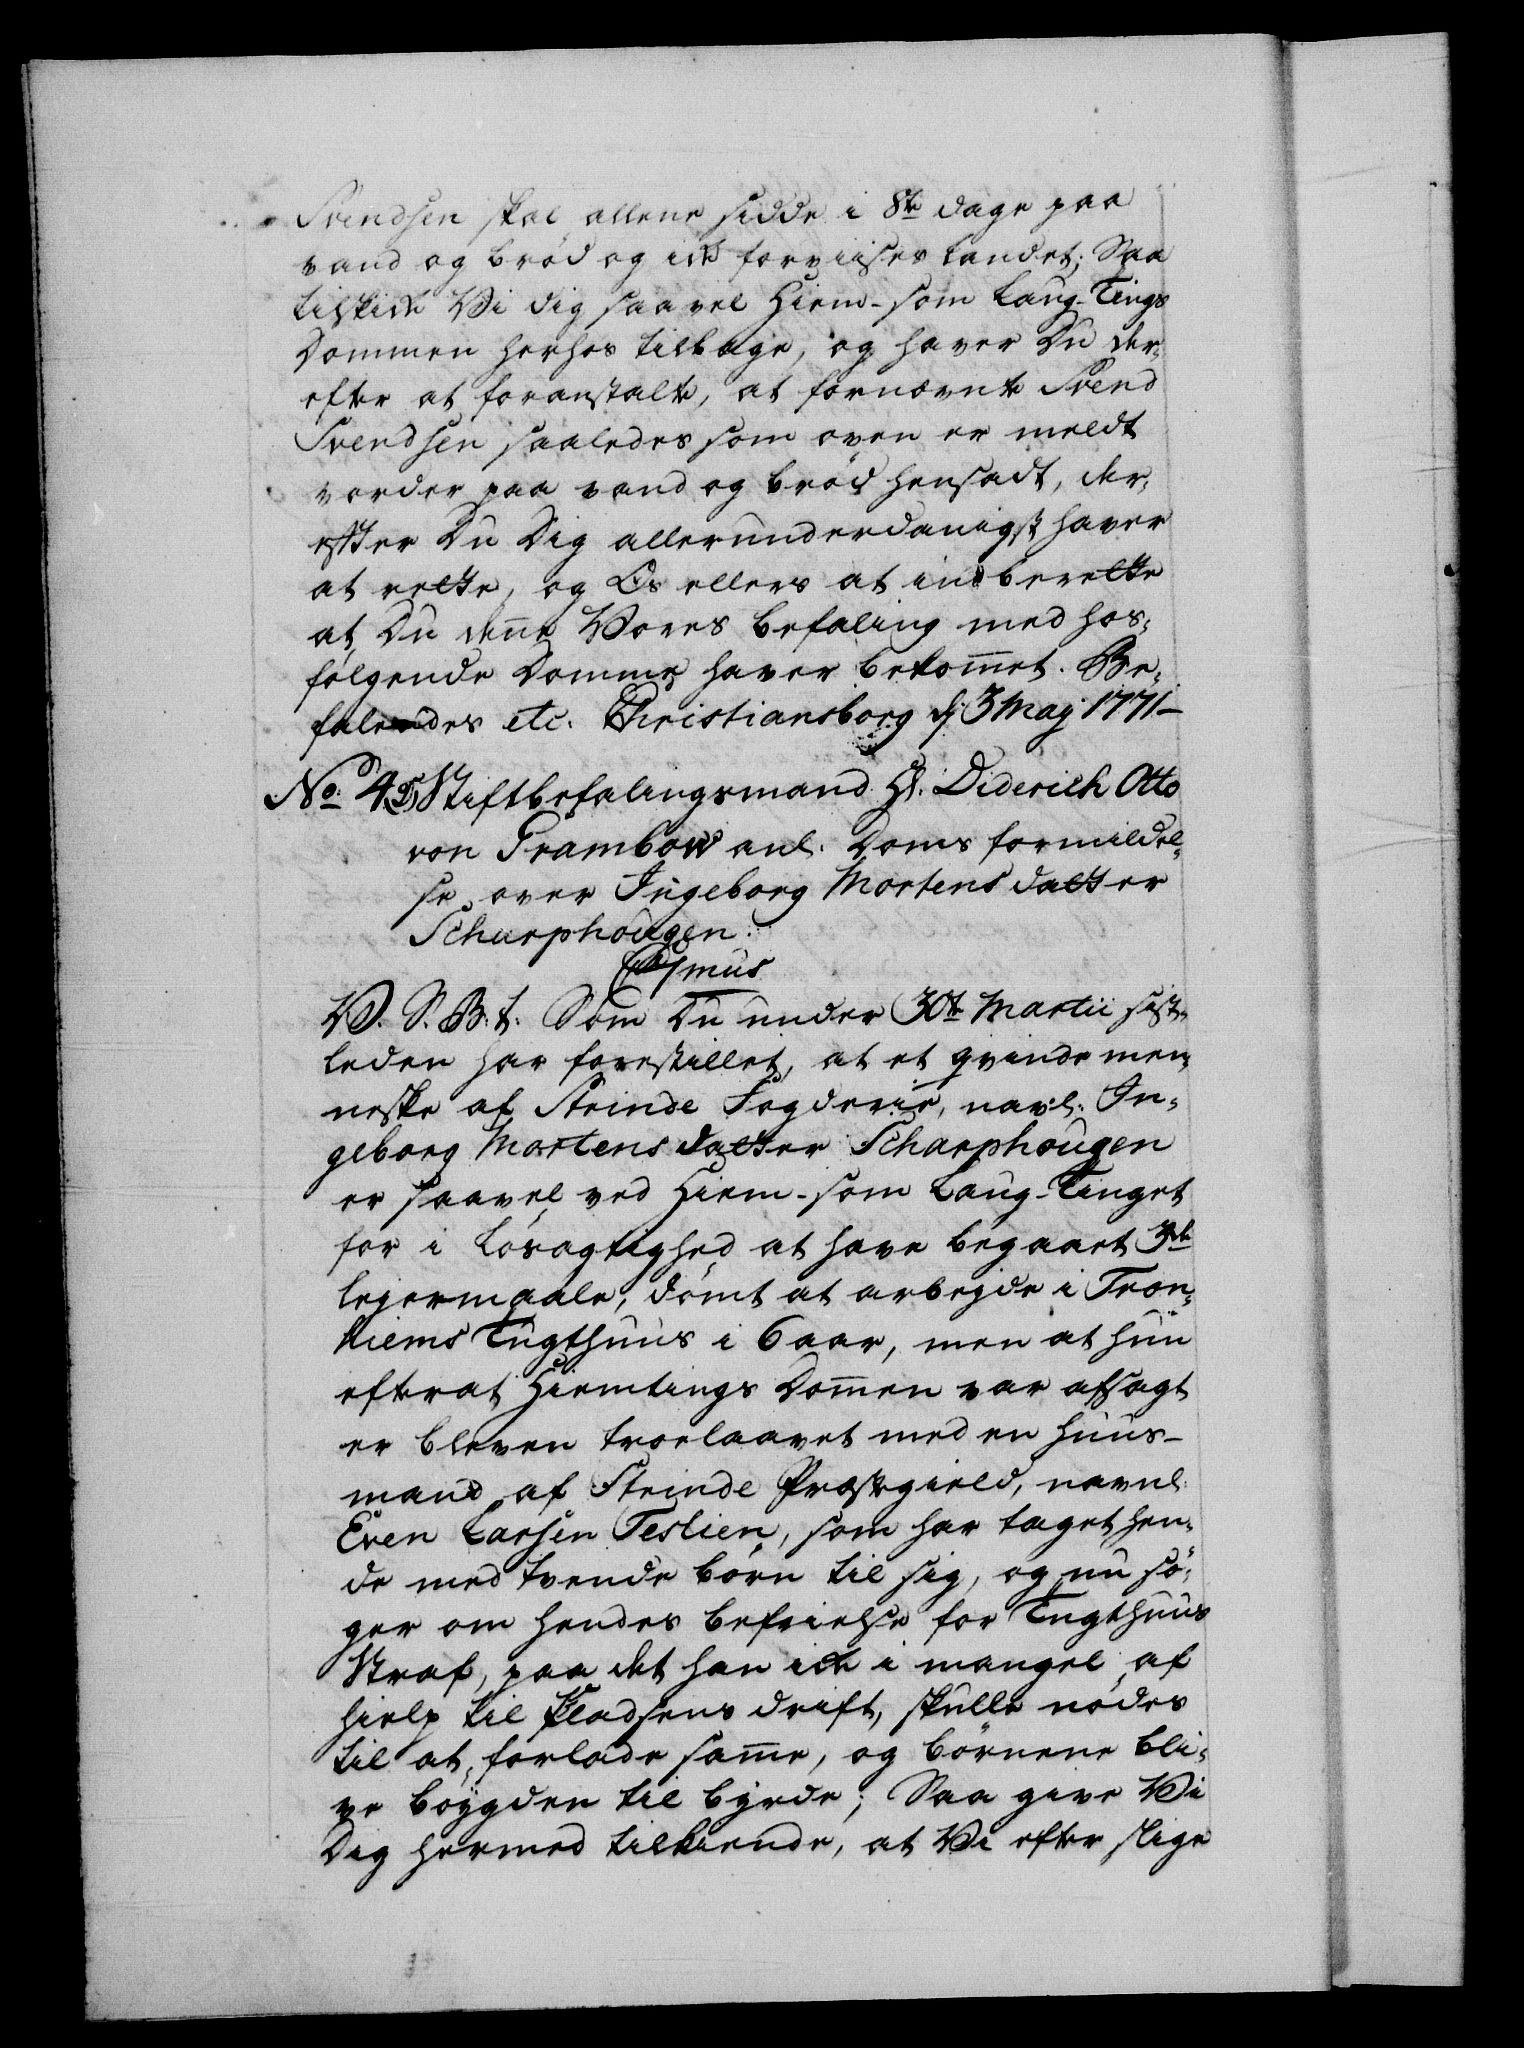 Svendsen skal allene sidde i 8te dage paa
vand og brød og icke forviises landet; Saa
tilskicke Wi dig saa vel Hiem- som Laug-Tings
Dommen herhos tilbage, og haver Du der¬
efter at foranstalte, at fornævnte Svend
Svendsen saaledes som oven er meldt
vorder paa vand og brød hensadt, der¬
efter Du Dig allerunderdanigst haver
at rette, og Os ellers at indberette
at Du denne Vores befaling med hos¬
følgende Domme haver bekommet. Be¬
falendes etc. Christiansborg d: 3 Maj 1771-
No: 45 Stiftbefalingsmand Hr. Diderich Otto
von Grambow anl. Doms formildel¬
se over Ingeborg Mortensdatter
Scharphougen.
C 7mus
W. S. B. t. Som Du under 30te Martii sist¬
leden har forestillet, at et qvinde men¬
neske af Strinde Fogderie, navl. In¬
geborg Mortensdatter Scharphougen
er saavel ved Hiem- som Laug-Tinget
for i Løsagtighed at have begaaet 3de
lejermaale, dømt at arbejde i Tron¬
hiems Tugthuus i 6 aar, men at hun
efterat Hiemtings Dommen var afsagt
er bleven troelovet med en huus-
mand af Strinde Præstegield, navnl.
Even Larsen Teslien, som har taget hen¬
de med tvende børn til sig, og nu sø¬
ger om hendes befrielse for Tugthuus
Straf, paa det han icke i mangel af
hielp til Pladsens drift, skulle nødes
til at forlade samme, og børnene bli¬
ve bøygden til byrde; Saa give Wi
Dig hermed tilkiende, at Wi efter slige